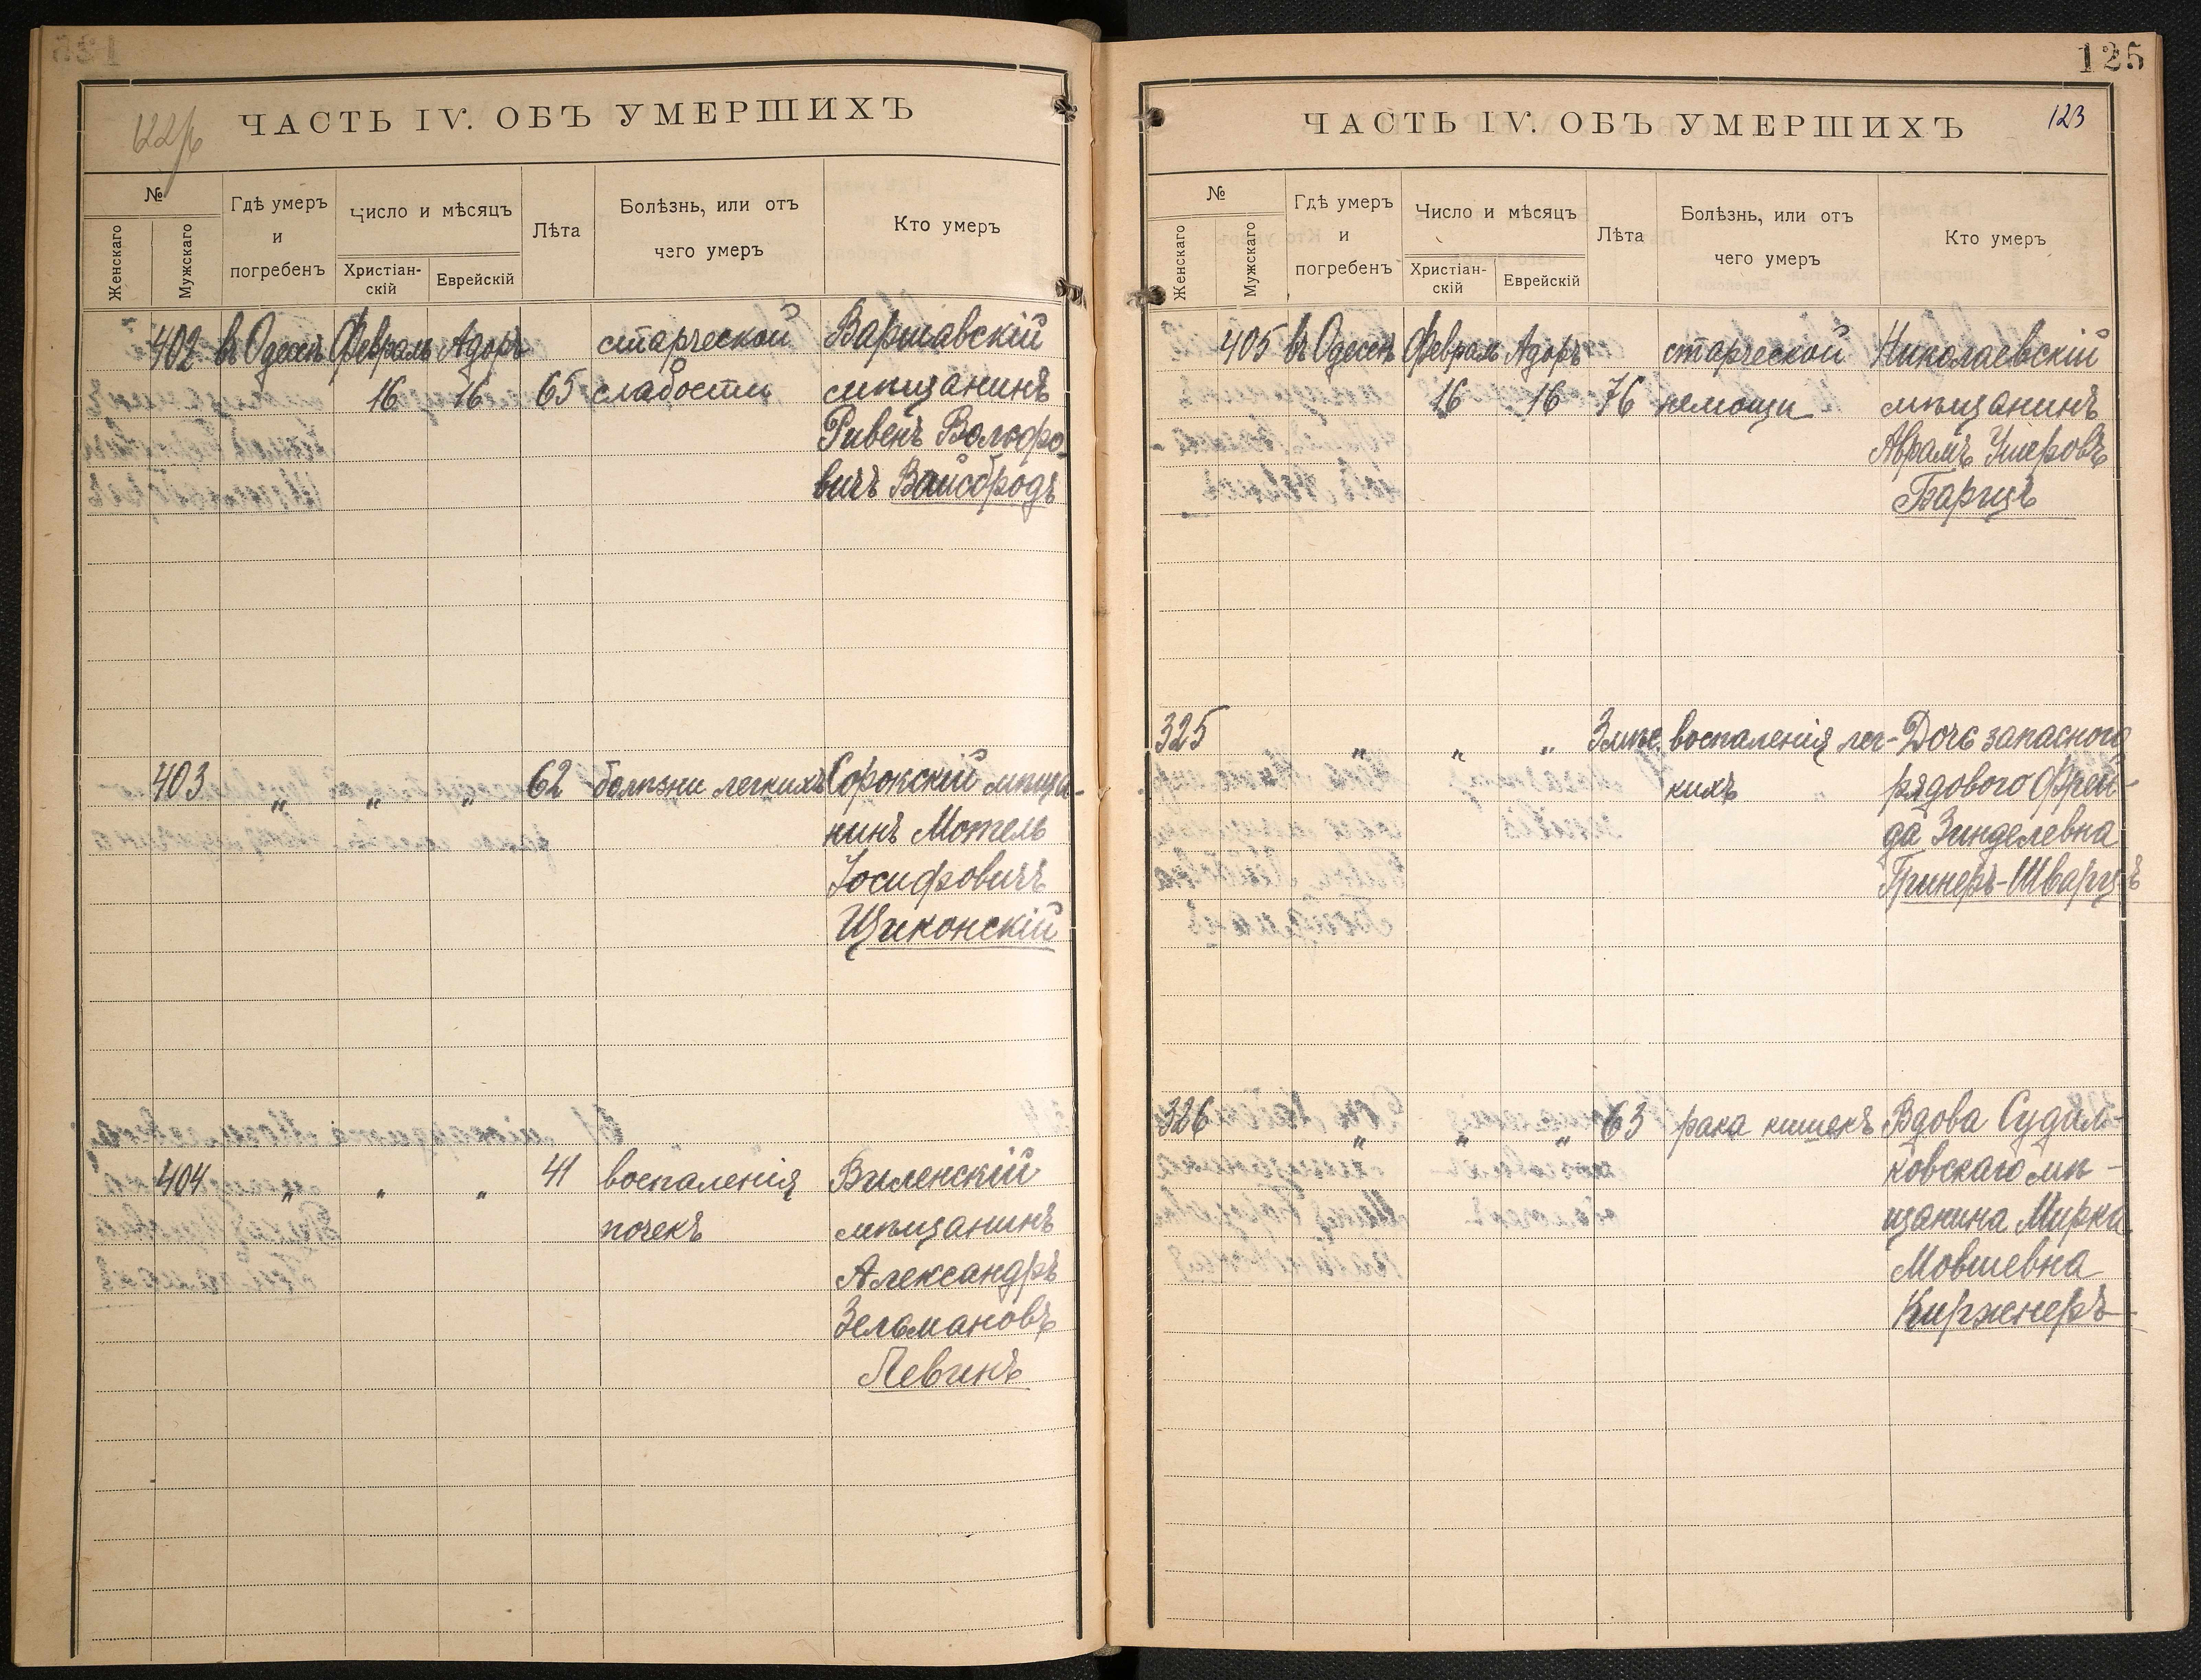 ЧАСТЬ IV. ОБЪ УМЕРШИХЪ
№
Женскаго
Мужскаго
Гдѣ умеръ
и
погребенъ
Число и мѣсяцъ
Христіан-
скій
Еврейскій
Лѣта
Болѣзнь, или отъ
чего умеръ
Кто умеръ
402 въ Одессѣ Февраль Адоръ старческой Варшавскій
16 16 65 слабости мѣщанинъ
Ривенъ Вольфо-
вичъ Вайсбродъ
403 " " " 62 болѣзни легкихъ Сорокскій мѣща-
нинъ Мотель
Іосифовичъ
Щиконскій
404 " " " 41 воспаленія Виленскій
почекъ мѣщанинъ
Александръ
Зельмановъ
Левинъ
125
ЧАСТЬ IV. ОБЪ УМЕРШИХЪ
123
№
Женскаго
Мужскаго
Гдѣ умеръ
и
погребенъ
Число и мѣсяцъ
Христіан-
скій
Еврейскій
Лѣта
Болѣзнь, или отъ
чего умеръ
Кто умеръ
405 въ Одессѣ Февраль Адоръ старческой Николаевскій
16 16 76 немощи мѣщанинъ
Аврамъ Ушеровъ
Барицъ
325 " " " 3 мѣс. воспаленія лег- Дочь запасного
кихъ рядового Фрей-
да Зинделевна
Гринеръ-Шварцъ
326 " " " 63 рака кишекъ Вдова Судил-
ковскаго мѣ-
щанина Мирка
Мовшевна
Киржнеръ